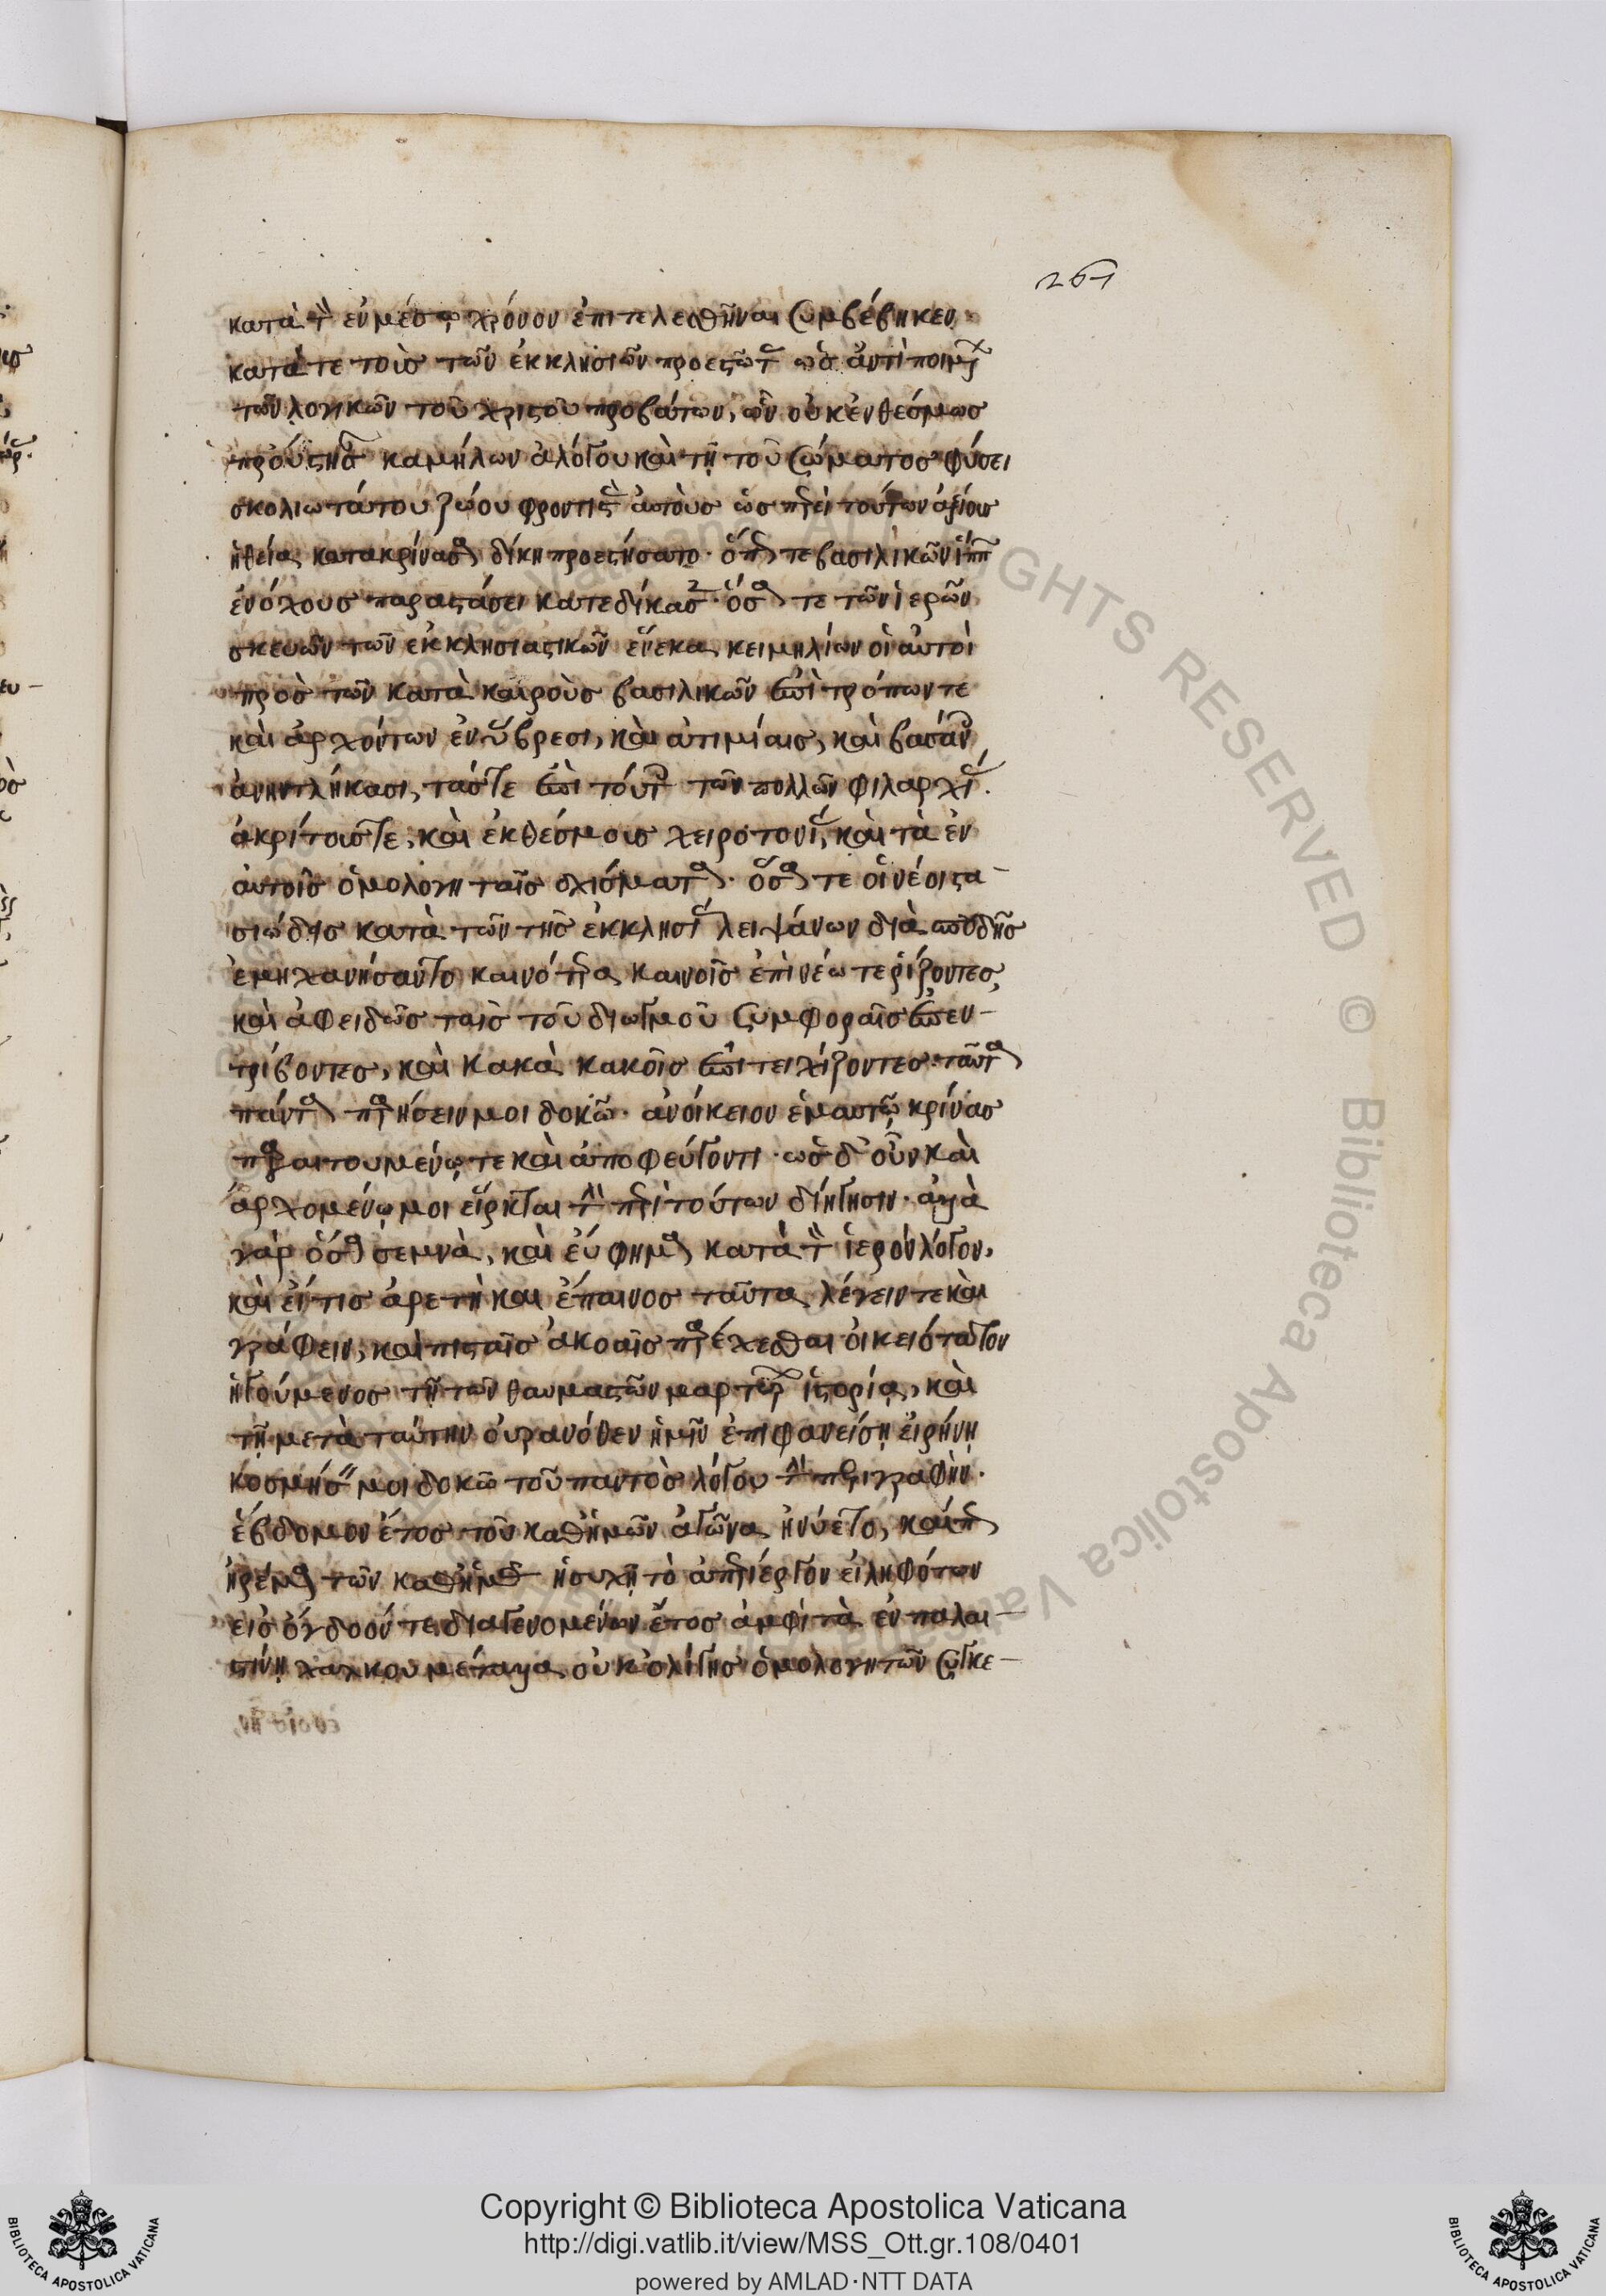 261
κατὰ τὸν ἐν μέσῳ χρόνον ἐπιτελεσθῆναι συμβέβηκεν.
κατά τε τοὺς τῶν ἐκκλησιῶν προεστῶτας ὡς ἀντὶ ποιμένων
τῶν λογικῶν τοῦ χριστοῦ προβάτων, ὧν οὐκ ἐνθέσμως
προύστησαν καμήλων ἀλόγου καὶ τῇ τοῦ σώματος φύσει
σκολιωτάτου ζώου φροντιστὰς αὐτοὺς ὥσπερ εἰ τούτων ἀξίους
ἡ θεία κατακρίνασα δίκη προεστήσατο. ὅπως τε βασιλικῶν ἵππων
ἐνόχους παραστάσει κατεδίκασεν. ὅσα τε τῶν ἱερῶν
σκευῶν τῶν ἐκκλησιαστικῶν ἕνεκα κειμηλίων οἱ αὐτοὶ
πρὸς τῶν κατὰ καιροὺς βασιλικῶν ἐπιτρόπων τε
καὶ ἀρχόντων ἐν ὕβρεσι, καὶ ἀτιμίαις, καὶ βασάνοις
ἀνηντλήκασι, τάς τε ἐπὶ τούτοις τῶν πολλῶν φιλαρχίας.
ἀκρίτους τε, καὶ ἐκθέσμους χειροτονίας, καὶ τὰ ἐν
αὐτοῖς ὁμολογηταῖς σχίσματα. ὅσα τε οἱ νέοι στα-
σιώδεις κατὰ τῶν τῆς ἐκκλησίας λειψάνων διὰ σπουδῆς
ἐμηχανήσαντο καινότερα καινοῖς ἐπινεωτερίζοντες,
καὶ ἀφειδῶς ταῖς τοῦ διωγμοῦ συμφοραῖς ἐπεν-
τρίβοντες, καὶ κακὰ κακοῖς ἐπιτειχίζοντες. ταῦτα
πάντα παρήσειν μοι δοκῶ. ἀνοίκειον ἐμαυτῷ κρίνας
παραιτουμένῳ τε καὶ ἀποφεύγοντι. ὡς δ' οὖν καὶ
ἀρχομένῳ μοι εἴρηται τὴν περὶ τούτων διήγησιν. ἀλλὰ
γὰρ ὅσα σεμνὰ, καὶ εὔφημα κατὰ τὸν ἱερὸν λόγον,
καὶ εἴ τις ἀρετὴ καὶ ἔπαινος ταῦτα λέγειν τε καὶ
γράφειν, καὶ πισταῖς ἀκοαῖς παρέχεσθαι οἰκειότατον
ἡγούμενος τῇ τῶν θαυμαστῶν μαρτύρων ἱστορίᾳ, καὶ
τῇ μετὰ ταύτην οὐρανόθεν ἡμῖν ἐπιφανείσῃ εἰρήνῃ
κοσμήσειν μοι δοκῶ τοῦ παντὸς λόγου τὴν περιγραφήν.
ἕβδομον ἔτος τοῦ καθ' ἡμῶν ἀγῶνα ἠνύετο, καί πως
ἠρέμα τῶν καθ' ἡμᾶς ἡσυχῇ τὸ ἀπερίεργον εἰληφότων
εἰς ὄγδοόν τε διαγενομένων ἔτος ἀμφὶ τὰ ἐν παλαι-
στίνῃ χαλκοῦ μέταλλα οὐκ ὀλίγης ὁμολογητῶν συγκε-
Copyright © Biblioteca Apostolica Vaticana
http://digi.vatlib.it/view/MSS_Ott.gr.108/0401
powered by AMLAD·NTT DATA